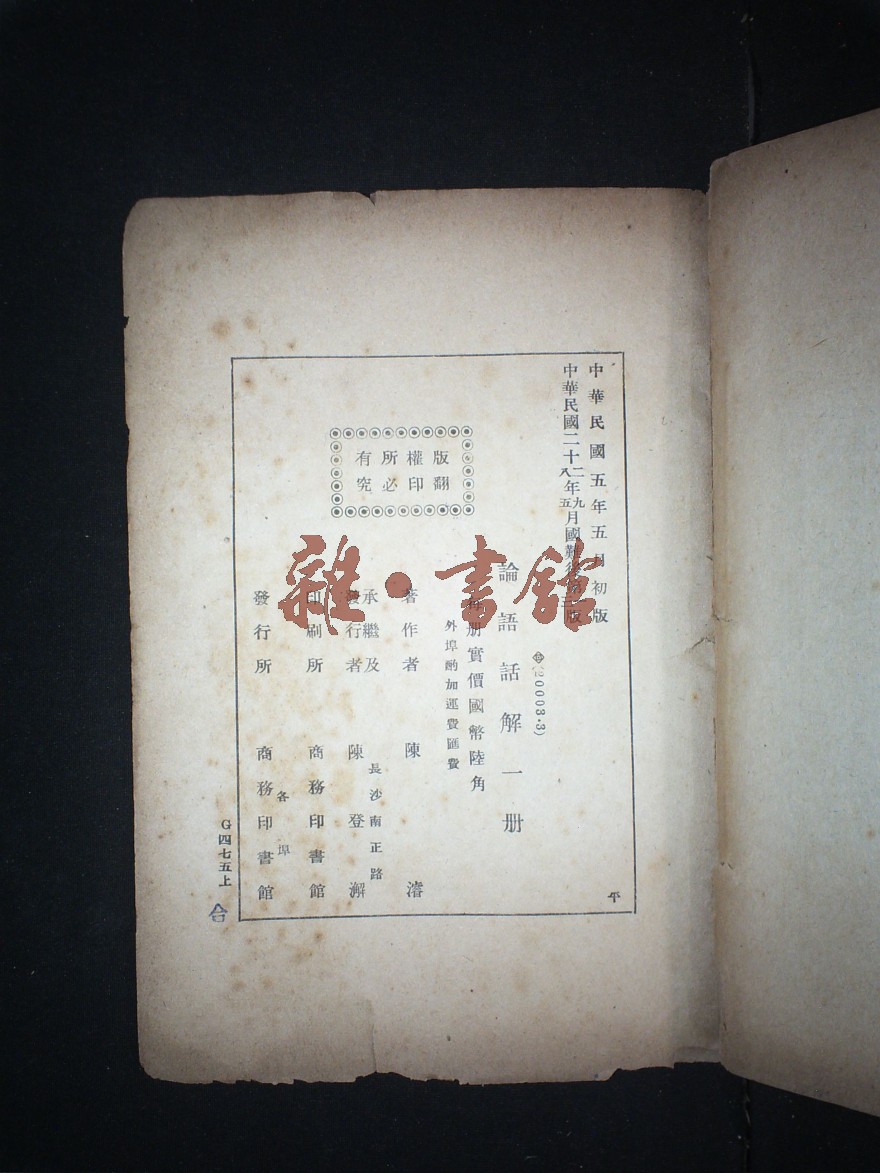 中華民國五年五月初版
中華民國二十二年九月國難後第
八五三版
(20003·3)
論語話解一册
每册實價國幣陸角
外埠酌加運費匯費
著作者 陳濬
承繼及發行者 陳登澥
長沙南正路
印刷所 商務印書館
發行所 各埠商務印書館
版權所有
翻印必究
平
G四七五上
合
雜·書館